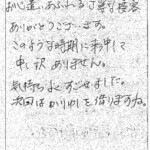 お心遣いあふれる丁寧な接客
ありがとうござ...ます。
このような時期に来中して
申し訳ありません。
気持ちよくすごせました。
次回はかりゆしを借りますね。